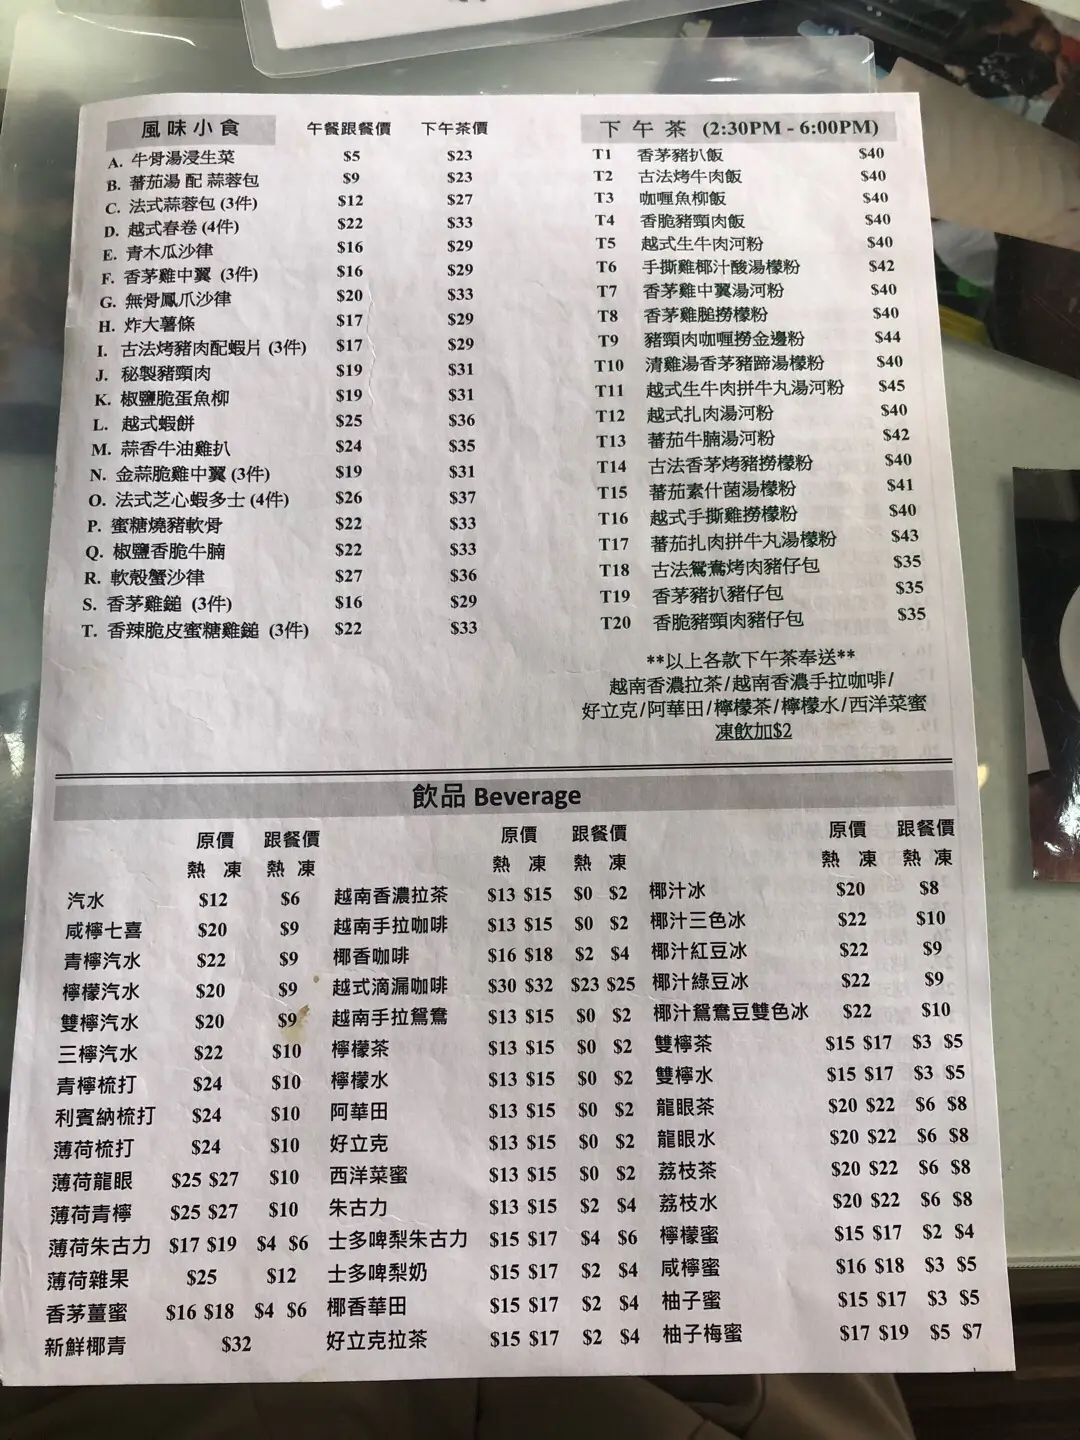 風味小食 午餐跟餐價 下午茶價
A. 牛骨湯浸生菜 $5 $23
B. 蕃茄湯 配 蒜蓉包 $9 $23
C. 法式蒜蓉包 (3件) $12 $27
D. 越式春卷 (4件) $22 $33
E. 青木瓜沙律 $16 $29
F. 香茅雞中翼 (3件) $16 $29
G. 無骨鳳爪沙律 $20 $33
H. 炸大薯條 $17 $29
I. 古法烤豬肉配蝦片 (3件) $17 $29
J. 秘製豬頸肉 $19 $31
K. 椒鹽脆蛋魚柳 $19 $31
L. 越式蝦餅 $25 $36
M. 蒜香牛油雞扒 $24 $35
N. 金蒜脆雞中翼 (3件) $19 $31
O. 法式芝心蝦多士 (4件) $26 $37
P. 蜜糖燒豬軟骨 $22 $33
Q. 椒鹽香脆牛腩 $22 $33
R. 軟殼蟹沙律 $27 $36
S. 香茅雞鎚 (3件) $16 $29
T. 香辣脆皮蜜糖雞鎚 (3件) $22 $33
下午茶 (2:30PM - 6:00PM)
T1 香茅豬扒飯 $40
T2 古法烤牛肉飯 $40
T3 咖喱魚柳飯 $40
T4 香脆豬頸肉飯 $40
T5 越式生牛肉河粉 $40
T6 手撕雞椰汁酸湯檬粉 $42
T7 香茅雞中翼湯河粉 $40
T8 香茅雞膇撈檬粉 $40
T9 豬頸肉咖喱撈金邊粉 $44
T10 清雞湯香茅豬蹄湯檬粉 $40
T11 越式生牛肉拼牛丸湯河粉 $45
T12 越式扎肉湯河粉 $40
T13 蕃茄牛腩湯河粉 $42
T14 古法香茅烤豬撈檬粉 $40
T15 蕃茄素什菌湯檬粉 $41
T16 越式手撕雞撈檬粉 $40
T17 蕃茄扎肉拼牛丸湯檬粉 $43
T18 古法鴛鴦烤肉豬仔包 $35
T19 香茅豬扒豬仔包 $35
T20 香脆豬頸肉豬仔包 $35
**以上各款下午茶奉送**
越南香濃拉茶/越南香濃手拉咖啡/
好立克/阿華田/檸檬茶/檸檬水/西洋菜蜜
凍飲加$2
飲品 Beverage
原價 跟餐價
熱 凍 熱 凍
汽水 $12 $6
咸檸七喜 $20 $9
青檸汽水 $22 $9
檸檬汽水 $20 $9
雙檸汽水 $20 $9
三檸汽水 $22 $10
青檸梳打 $24 $10
利賓納梳打 $24 $10
薄荷梳打 $24 $10
薄荷龍眼 $25 $27 $10
薄荷青檸 $25 $27 $10
薄荷朱古力 $17 $19 $4 $6
薄荷雜果 $25 $12
香茅薑蜜 $16 $18 $4 $6
新鮮椰青 $32
原價 跟餐價
熱 凍 熱 凍
越南香濃拉茶 $13 $15 $0 $2
越南手拉咖啡 $13 $15 $0 $2
椰香咖啡 $16 $18 $2 $4
越式滴漏咖啡 $30 $32 $23 $25
越南手拉鴛鴦 $13 $15 $0 $2
檸檬茶 $13 $15 $0 $2
檸檬水 $13 $15 $0 $2
阿華田 $13 $15 $0 $2
好立克 $13 $15 $0 $2
西洋菜蜜 $13 $15 $0 $2
朱古力 $13 $15 $2 $4
士多啤梨朱古力 $15 $17 $4 $6
士多啤梨奶 $15 $17 $2 $4
椰香華田 $15 $17 $2 $4
好立克拉茶 $15 $17 $2 $4
原價 跟餐價
熱 凍 熱 凍
椰汁冰 $20 $8
椰汁三色冰 $22 $10
椰汁紅豆冰 $22 $9
椰汁綠豆冰 $22 $9
椰汁鴛鴦豆雙色冰 $22 $10
雙檸茶 $15 $17 $3 $5
雙檸水 $15 $17 $3 $5
龍眼茶 $20 $22 $6 $8
龍眼水 $20 $22 $6 $8
荔枝茶 $20 $22 $6 $8
荔枝水 $20 $22 $6 $8
檸檬蜜 $15 $17 $2 $4
咸檸蜜 $16 $18 $3 $5
柚子蜜 $15 $17 $3 $5
柚子梅蜜 $17 $19 $5 $7